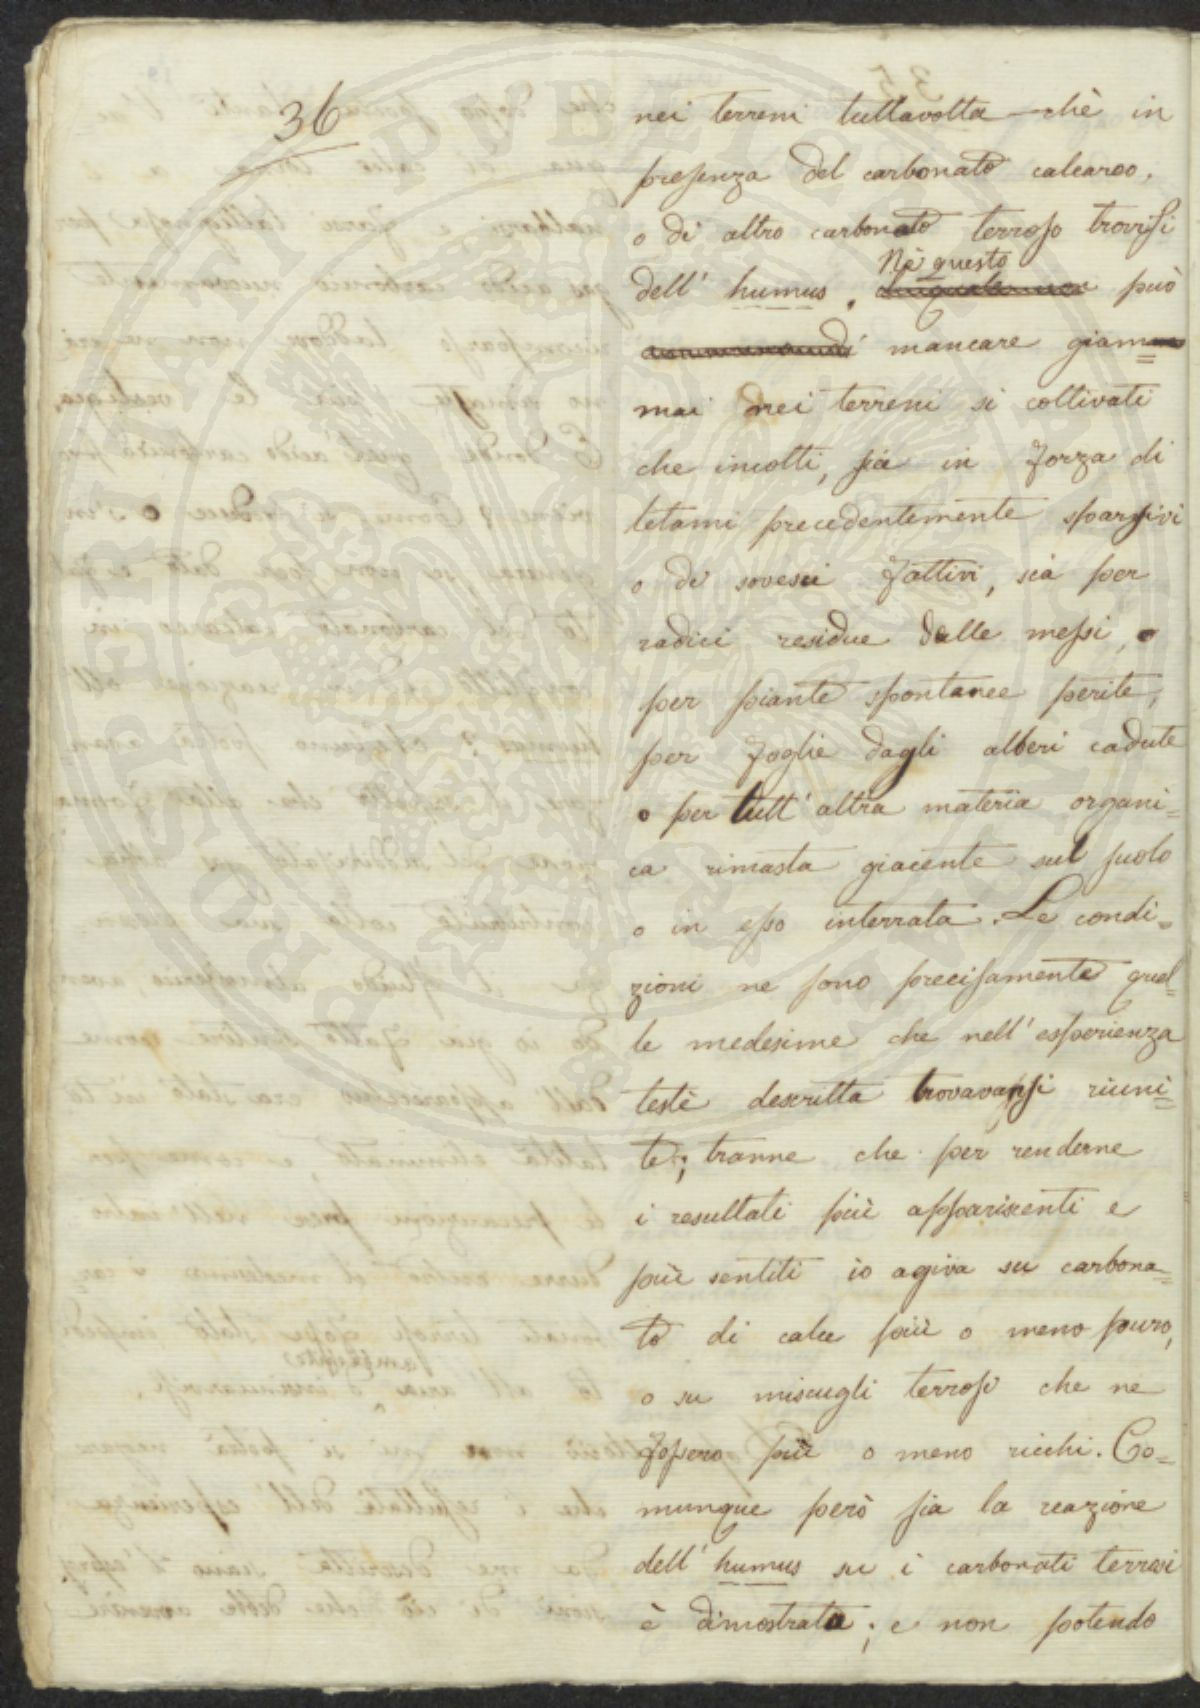 36
nei terreni tuttavolta-chè in
presenza del carbonato calcareo,
o di altro carbonato terroso trovisi
dell' humus. Nè questo può
mancare giam=
mai nei terreni sì coltivati
che incolti, sia in forza di
letami precedentemente sparsivi
o di sovesci fattivi, sia per
radici residue dalle messi, o
per piante spontanee perite,
per foglie dagli alberi cadute
o per tutt' altra materia organi=
ca rimasta giacente sul suolo
o in esso interrata. Le condi=
zioni ne sono precisamente quel=
le medesime che nell' esperienza
testè descritta trovavansi riuni=
te; tranne che per renderne
i resultati più appariscenti e
più sentiti io agiva su carbona=
to di calce più o meno puro,
o su miscugli terrosi che ne
fossero più o meno ricchi. Co=
munque però sia la reazione
dell' humus su i carbonati terrosi
è dimostrata; e non potendo